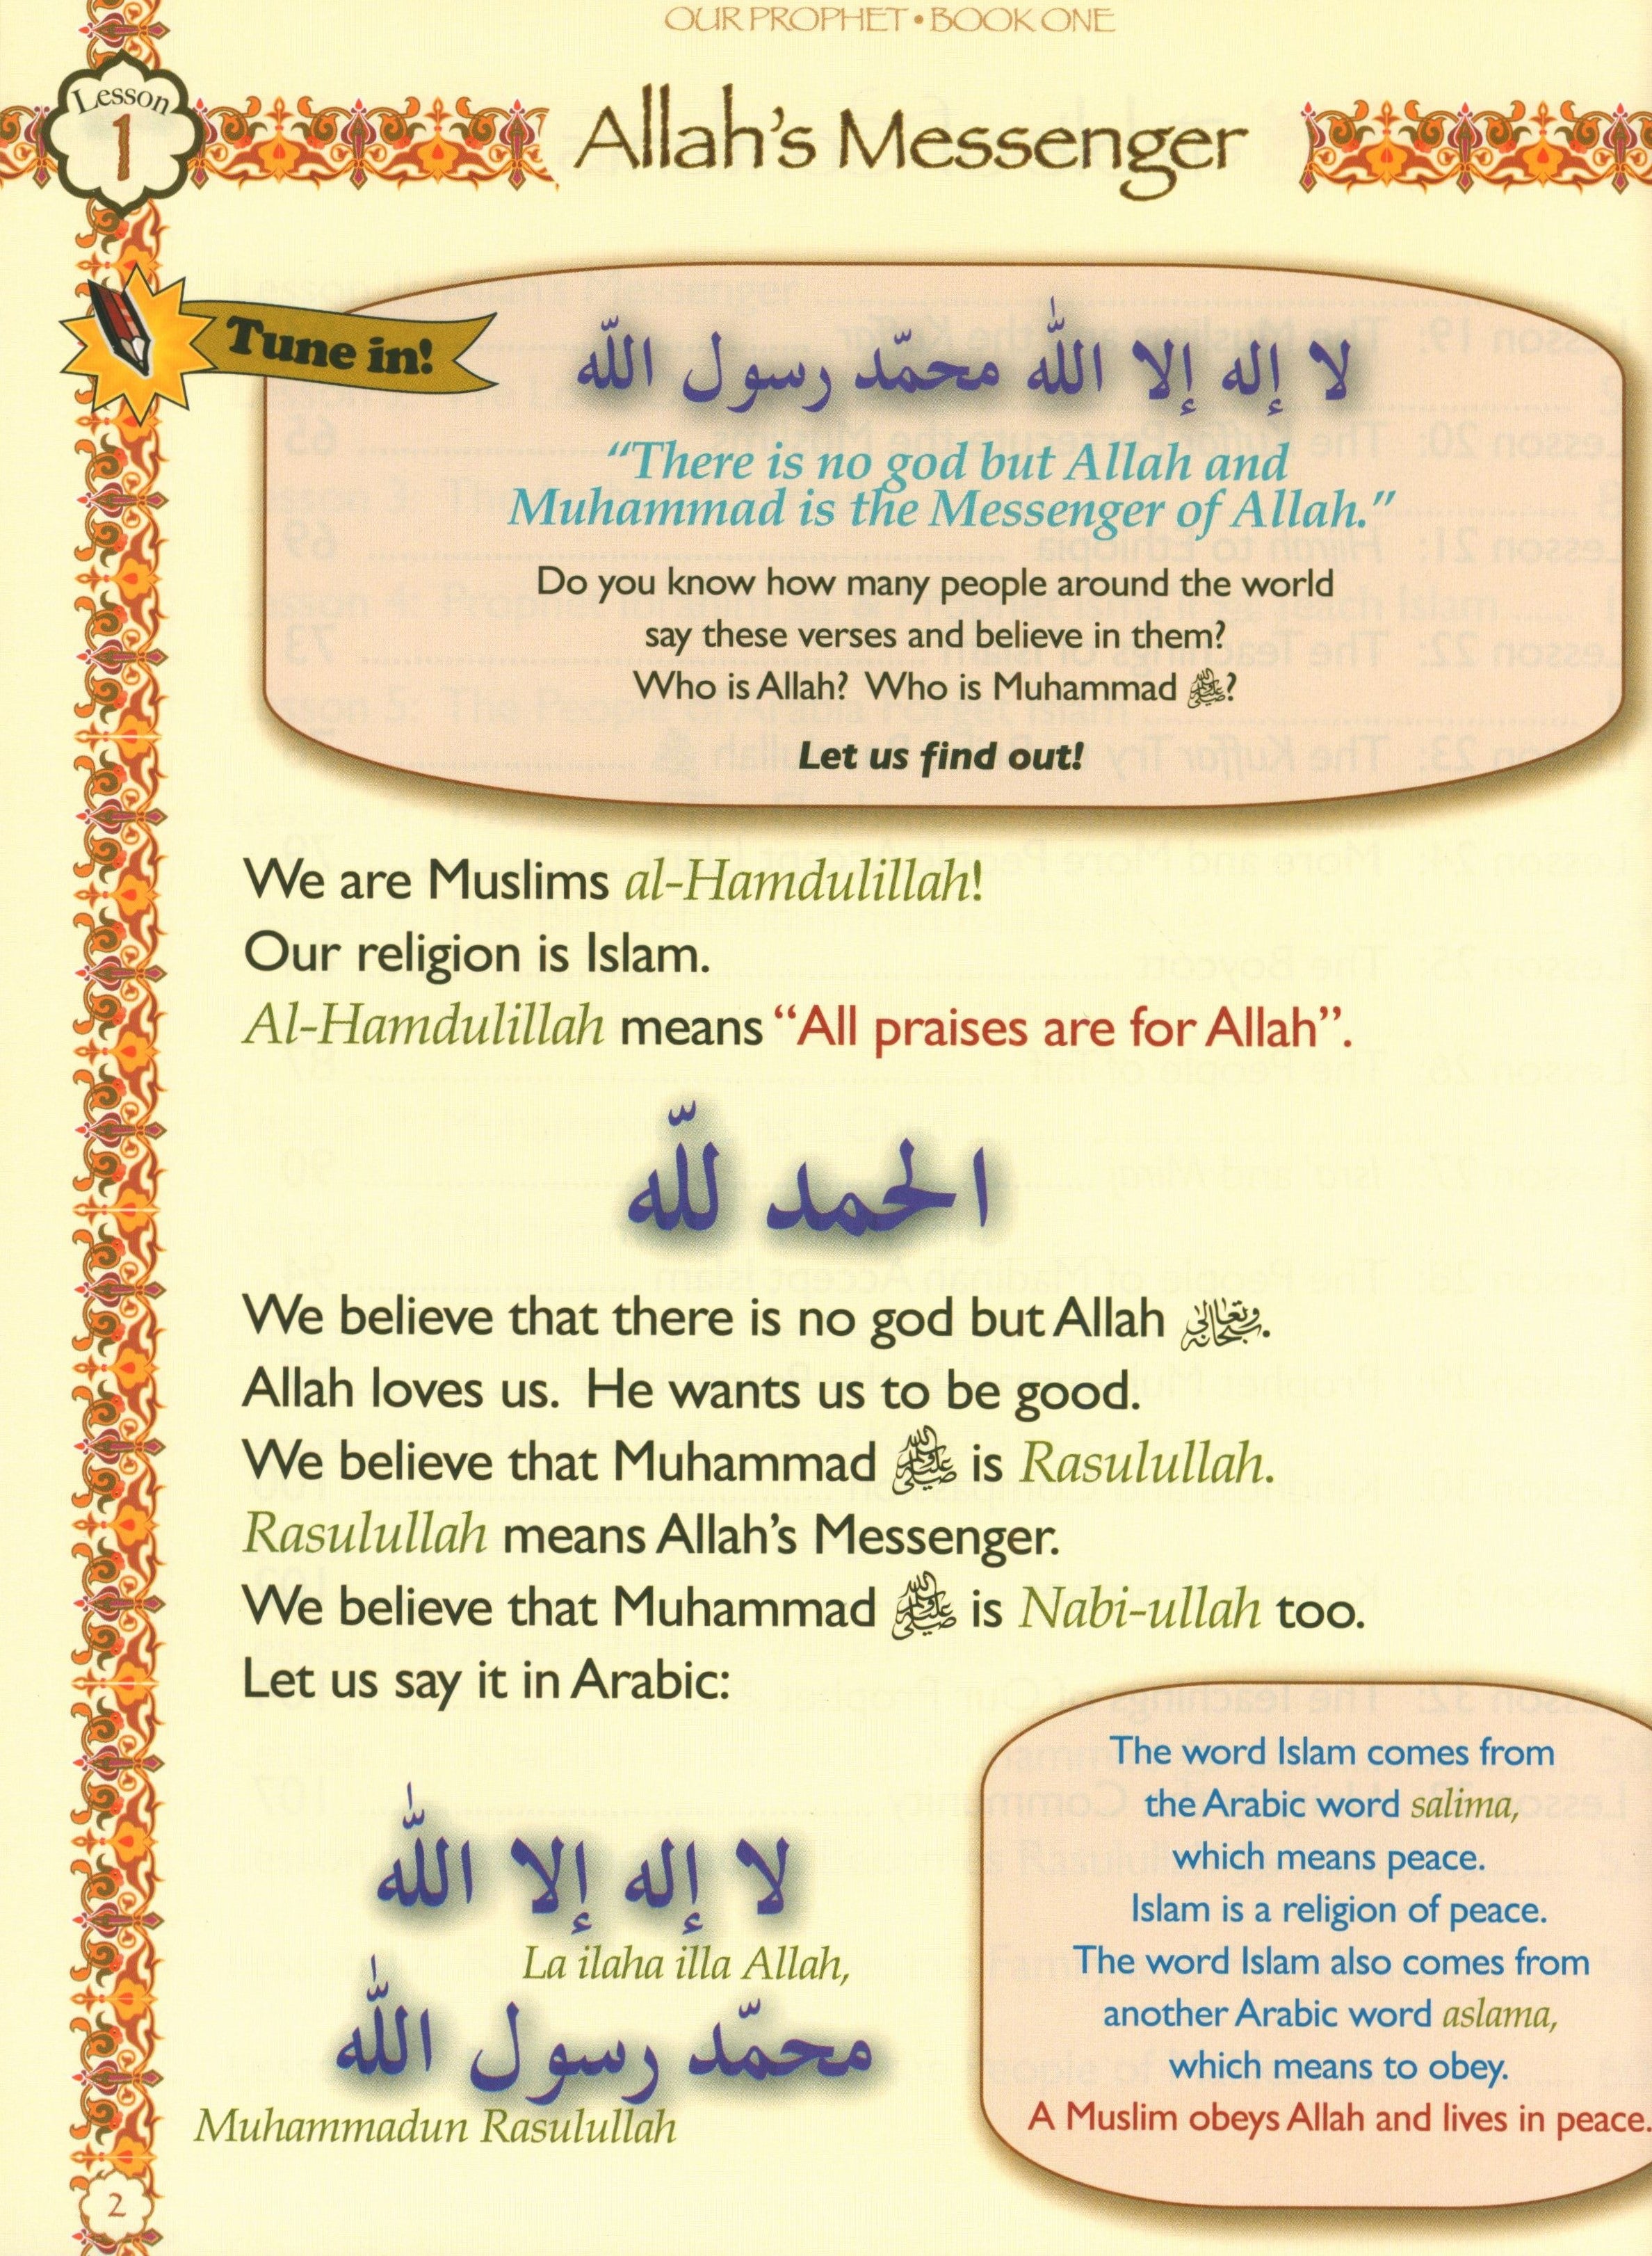 OUR PROPHET • BOOK ONE
Lesson
1
Allah's Messenger
Tune in!
لا إله إلا الله محمّد رسول الله
“There is no god but Allah and
Muhammad is the Messenger of Allah.”
Do you know how many people around the world
say these verses and believe in them?
Who is Allah? Who is Muhammad ﷺ?
Let us find out!
We are Muslims al-Hamdulillah!
Our religion is Islam.
Al-Hamdulillah means “All praises are for Allah”.
الحمد لله
We believe that there is no god but Allah سبحانه وتعالى.
Allah loves us. He wants us to be good.
We believe that Muhammad ﷺ is Rasulullah.
Rasulullah means Allah’s Messenger.
We believe that Muhammad ﷺ is Nabi-ullah too.
Let us say it in Arabic:
لا إله إلا الله
La ilaha illa Allah,
محمّد رسول الله
Muhammadun Rasulullah
The word Islam comes from
the Arabic word salima,
which means peace.
Islam is a religion of peace.
The word Islam also comes from
another Arabic word aslama,
which means to obey.
A Muslim obeys Allah and lives in peace.
2